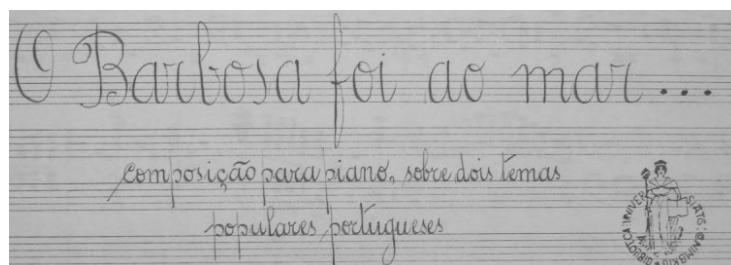 O Barbosa foi ao mar...
composição para piano, sobre dois temas
populares portugueses